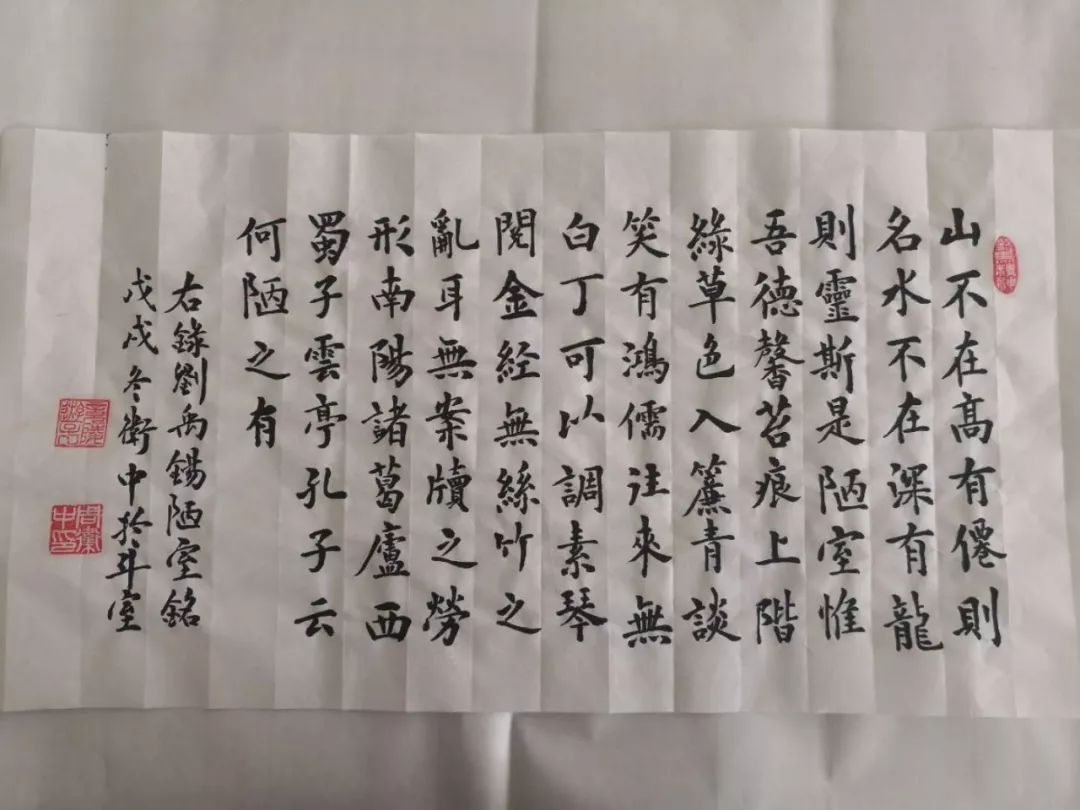 山不在高有僊則
名水不在深有龍
則靈斯是陋室惟
吾德馨苔痕上階
綠草色入簾青談
笑有鴻儒往來無
白丁可以調素琴
閱金經無絲竹之
亂耳無案牘之勞
形南陽諸葛廬西
蜀子雲亭孔子云
何陋之有
右錄劉禹錫陋室銘
戊戌冬衛中於斗室